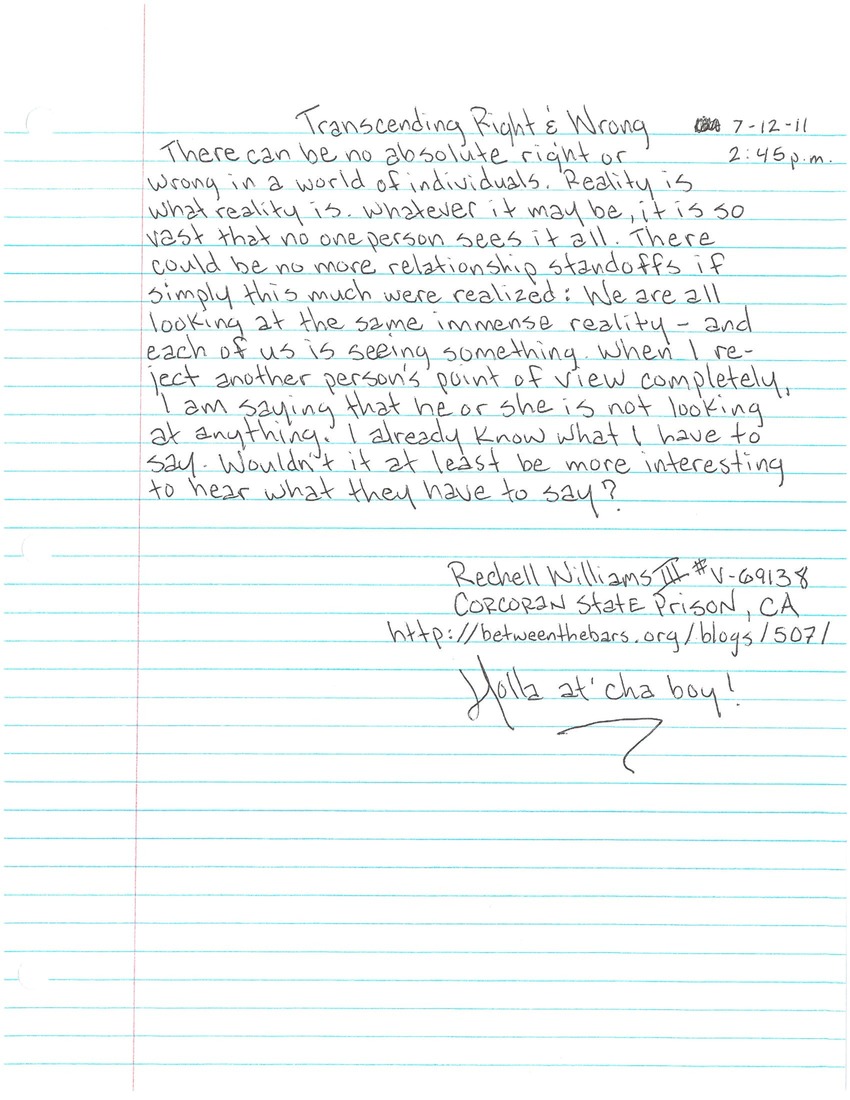 Transcending Right & Wrong 7-12-11
There can be no absolute right or 2:45 p.m.
wrong in a world of individuals. Reality is
what reality is. Whatever it may be, it is so
vast that no one person sees it all. There
could be no more relationship standoffs if
simply this much were realized: We are all
looking at the same immense reality - and
each of us is seeing something. When I re-
ject another person's point of view completely,
I am saying that he or she is not looking
at anything. I already know what I have to
say. Wouldn't it at least be more interesting
to hear what they have to say?
Rechell Williams III #V-69138
CORCORAN STATE PRISON, CA
http://betweenthebars.org/blogs/507/
Holla at' cha boy!